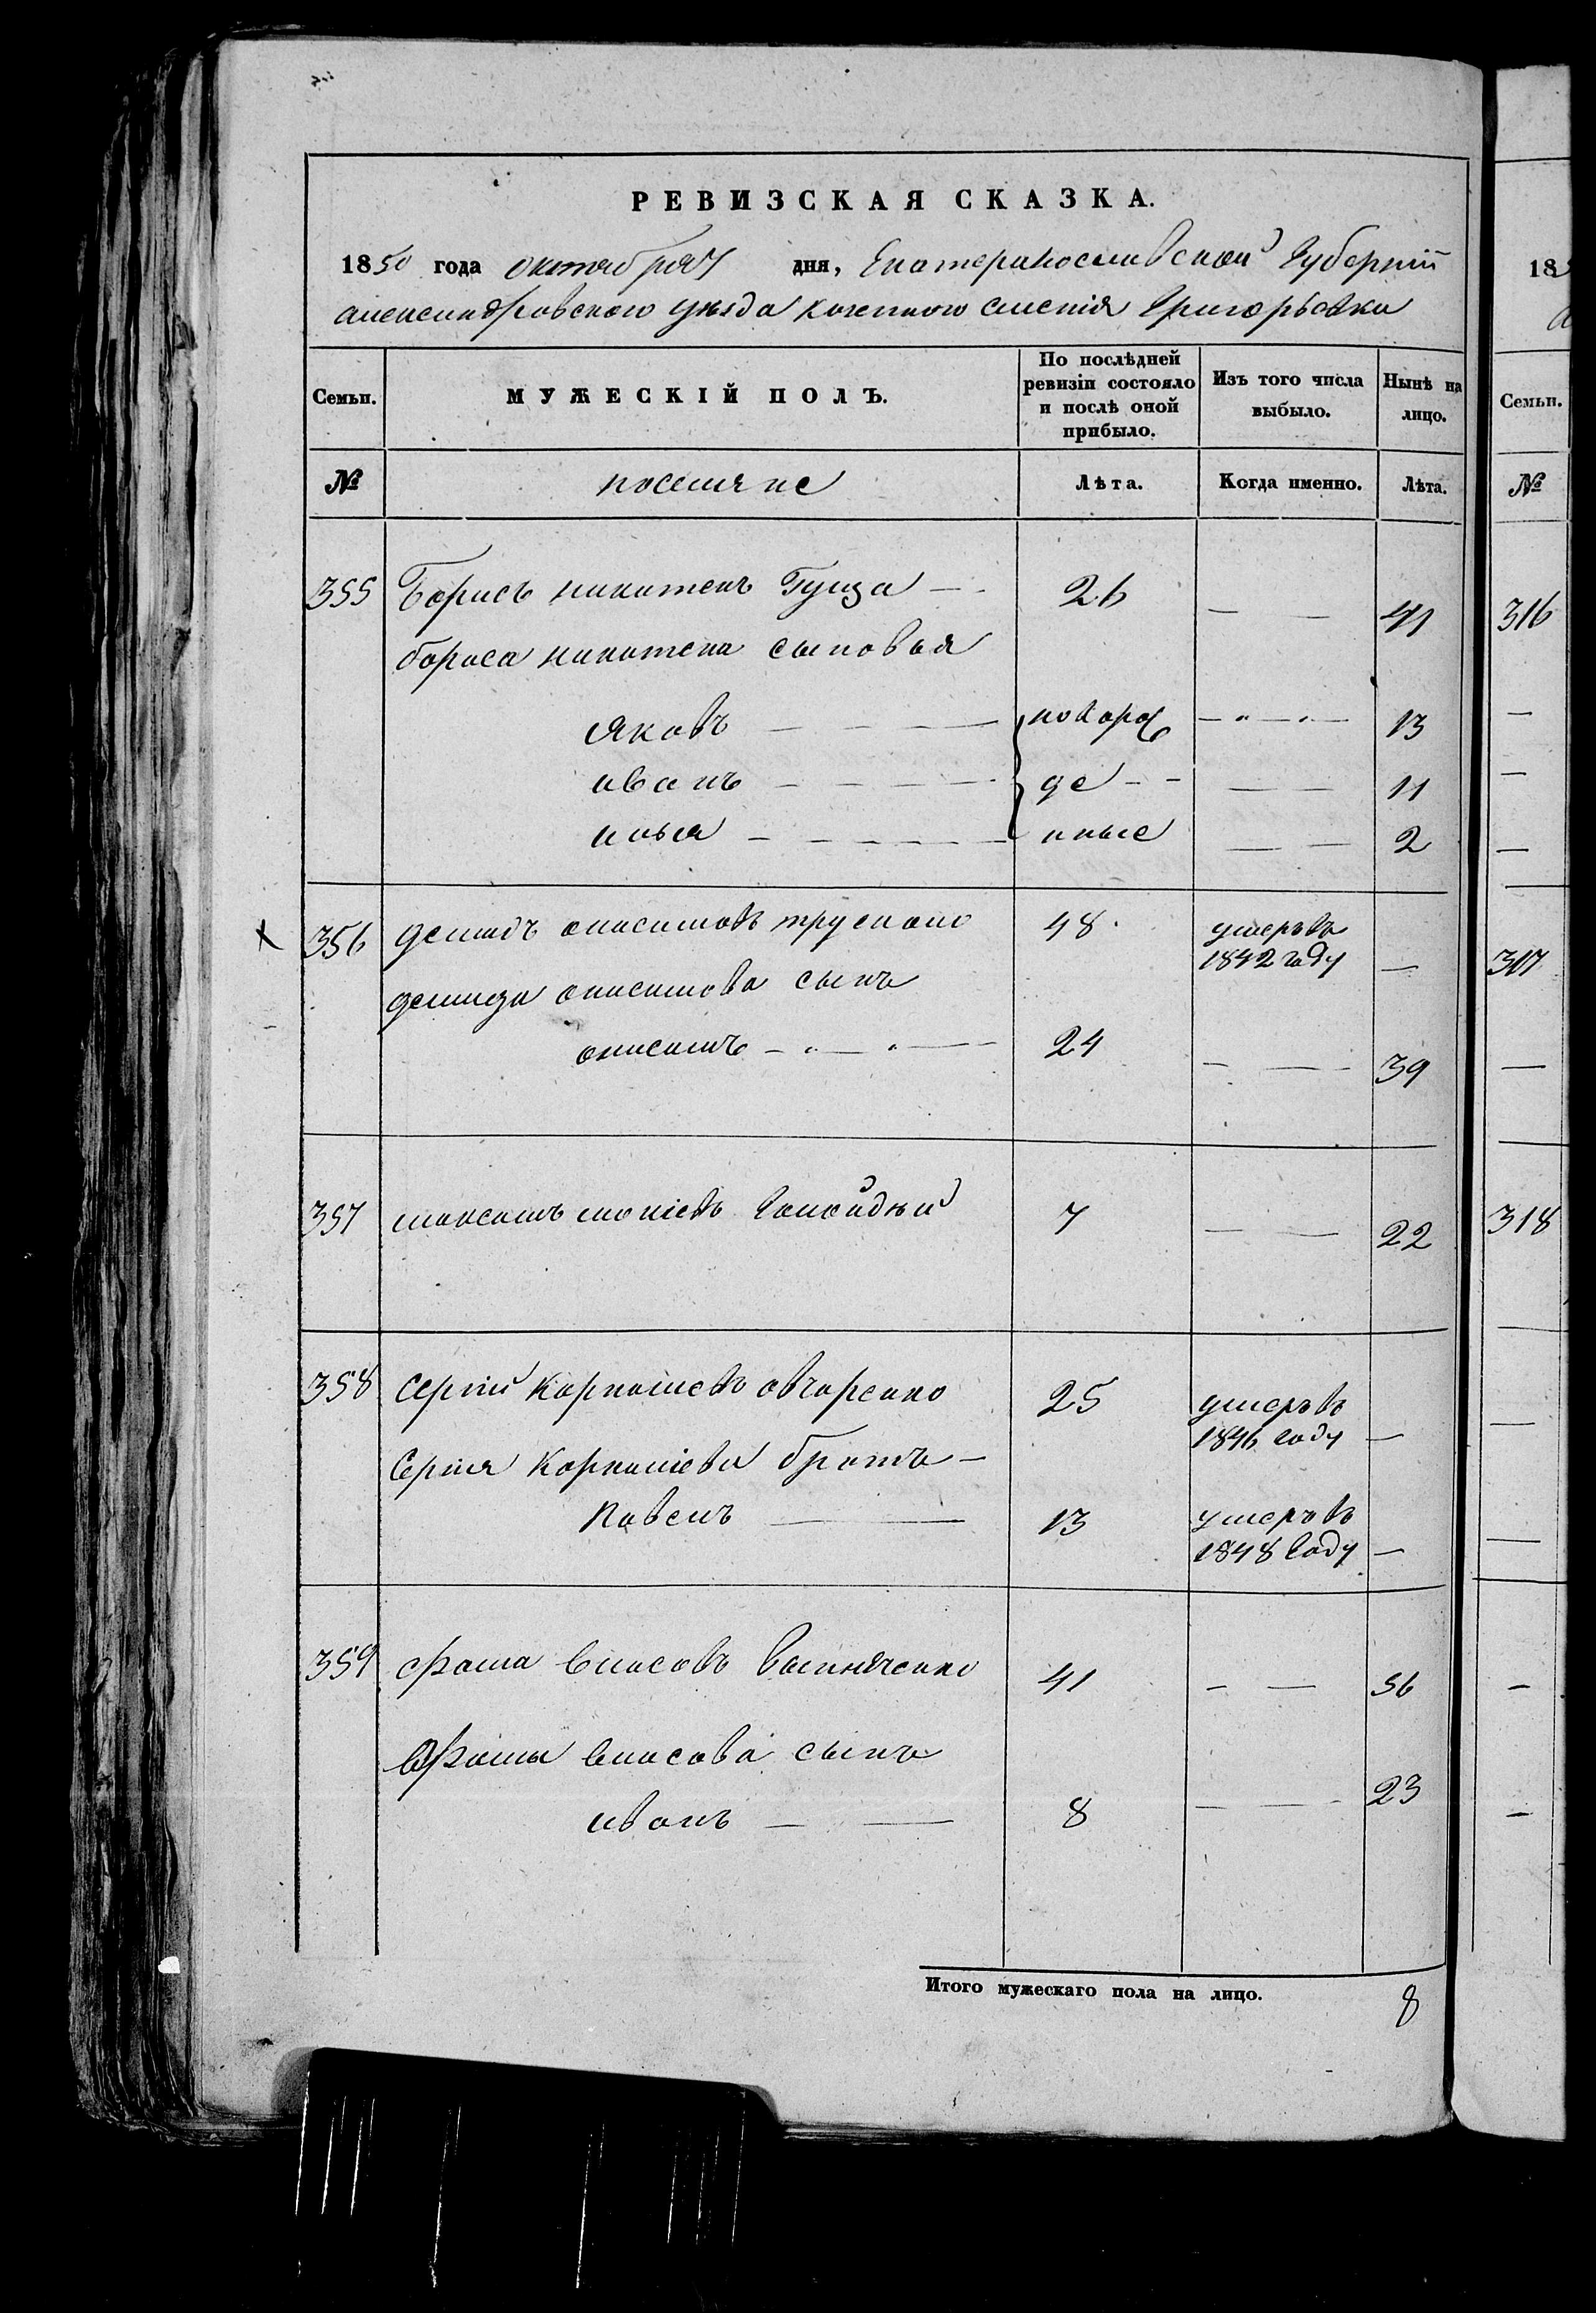 РЕВИЗСКАЯ СКАЗКА.
1850 года октября дня, Екатеринославской Губернии
александровского уезда казенного селения Григорьевки
Семьи. МУЖЕСКІЙ ПОЛЪ. По послѣдней ревизіи состояло и послѣ оной прибыло. Изъ того числа выбыло. Нынѣ на лицо.
№ поселяне Лѣта. Когда именно. Лѣта.
355 Борисъ никитенъ Гунза 26 — — 41
бориса никитена сыновья
Яковъ новорож — „ — „ — 13
иванъ де — — 11
илья нные — — 2
356 демидъ анисимовъ 48 умеръ въ
1842 году —
демида анисимова сынъ
анисимъ 24 — — 39
357 максимъ 7 — — 22
358 Сергий Карпеіевъ овчаренко 25 умеръ въ
1846 году —
Сергія брать
Павелъ 13 умеръ въ
1848 году —
359 Фома власовъ 41 — — 56
Фомы власова сынъ
иванъ 8 — — 23
Итого мужескаго пола на лицо. 8
18
Семьи.
№
316
317
318